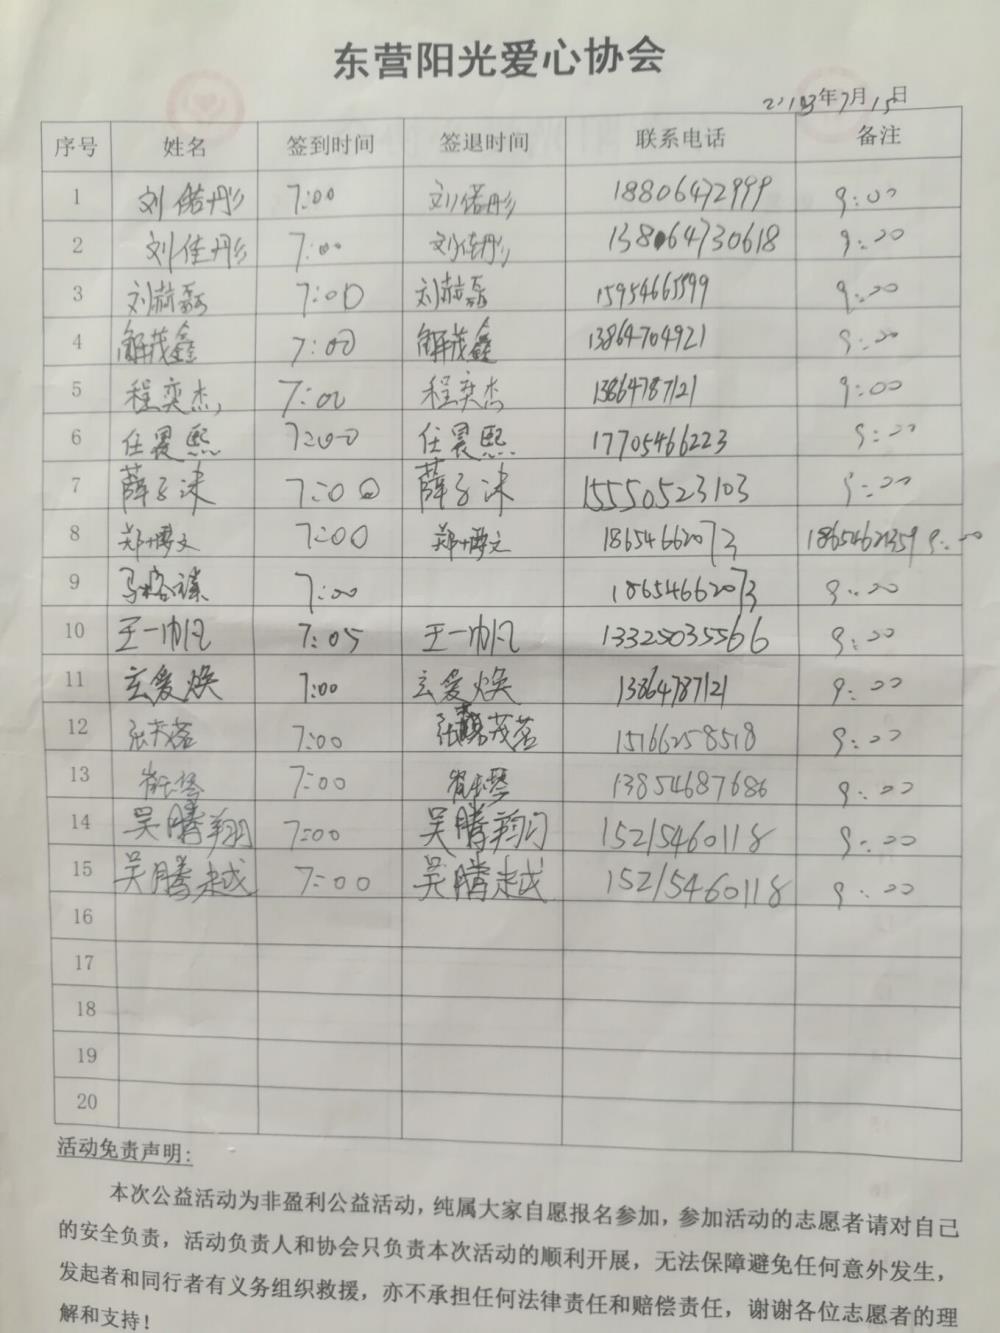 东营阳光爱心协会
年7月15日
序号 姓名 签到时间 签退时间 联系电话 备注
1 刘偌彤 7:00 刘偌彤 18806472999 9:00
2 刘佳彤 7:00 刘佳彤 138064730618 9:00
3 刘赫磊 7:00 刘赫磊 15954665599 9:00
4 解茂鑫 7:00 解茂鑫 13864704921 9:00
5 程奕杰 7:00 程奕杰 13864787121 9:00
6 任晨熙 7:00 任晨熙 17705466223 9:00
7 薛子沫 7:00 薛子沫 15550523103 9:00
8 郑博文 7:00 郑博文 18654662073 18654621359 9:00
9 马 7:00 18654662073 9:00
10 王一帆 7:05 王一帆 13325035566 9:00
11 玄爱焕 7:00 玄爱焕 13864787121 9:00
12 张茂茗 7:00 张茂茗 15166258518 9:00
13 7:00 13854687686 9:00
14 吴腾翔 7:00 吴腾翔 15215460118 9:00
15 吴腾越 7:00 吴腾越 15215460118 9:00
16
17
18
19
20
活动免责声明:
本次公益活动为非盈利公益活动，纯属大家自愿报名参加，参加活动的志愿者请对自己
的安全负责，活动负责人和协会只负责本次活动的顺利开展，无法保障避免任何意外发生，
发起者和同行者有义务组织救援，亦不承担任何法律责任和赔偿责任，谢谢各位志愿者的理
解和支持！